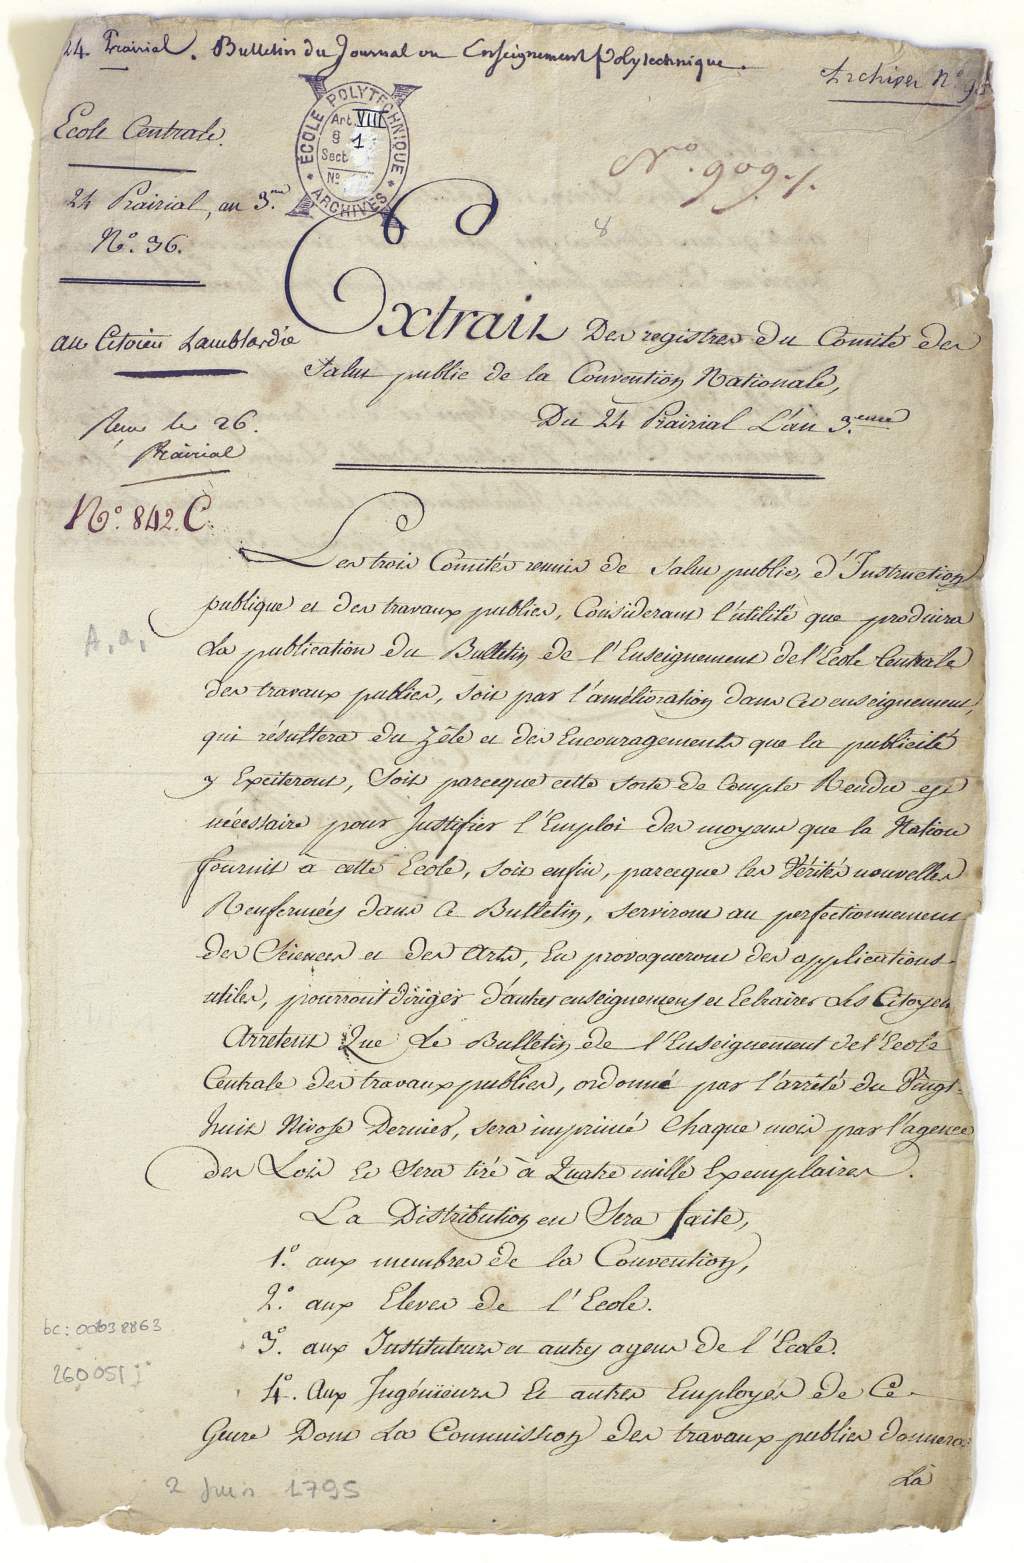 24. Prairial. Bulletin du Journal ou Enseignement Polytechnique.
Archives N.º 95
Ecole Centrale.
ÉCOLE POLYTECHNIQUE
Art. VIII
§ 1
Sect
Nº
ARCHIVES
Nº. 909./.
24 Prairial, an 3.me
Nº. 36.
8
au Citoien Lamblardie
Extrait Des registres du Comité de
Salut public de la Convention Nationale,
Du 24 Prairial L'an 3.eme
Reçu le 26.
Prairial
Nº. 842. C.
Les trois Comités reunis de Salut public, d'Instruction
publique et des travaux publics, Considerant l'utilité que produira
La publication du Bulletin de l'Enseignement de l'Ecole Centrale
A. a.
des travaux publics, soit par l'amélioration dans cet enseignement,
qui résultera du Zèle et des Encouragements que la publicité
y Exciteront, Soit parceque cette sorte de Compte Rendu est
nécessaire pour Justifier l'Emploi des moyens que la Nation
fournit à cette Ecole, soit enfin, parceque les Vérités nouvelles
Renfermées dans ce Bulletin, serviront au perfectionnement
des Sciences et des Arts, En provoqueront des applications
utiles, pourront diriger d'autres enseignemens et Eclairer Les Citoyens
Arretent Que Le Bulletin de l'Enseignement de l'Ecole
Centrale des travaux publics, ordonné par l'arrêté du Vingt-
huit Nivose Dernier, sera imprimé Chaque mois par l'agence
des Lois et Sera tiré à Quatre mille Exemplaires.
La Distribution en Sera faite,
1.º aux membres de la Convention,
2.º aux Eleves de l'Ecole.
bc: 00638863
3.º aux Instituteurs et autres agens de l'Ecole.
260051
4.º Aux Ingénieurs Et autres Employés de Ce
Genre Dont La Commission des travaux publics donnera
La
2 Juin 1795